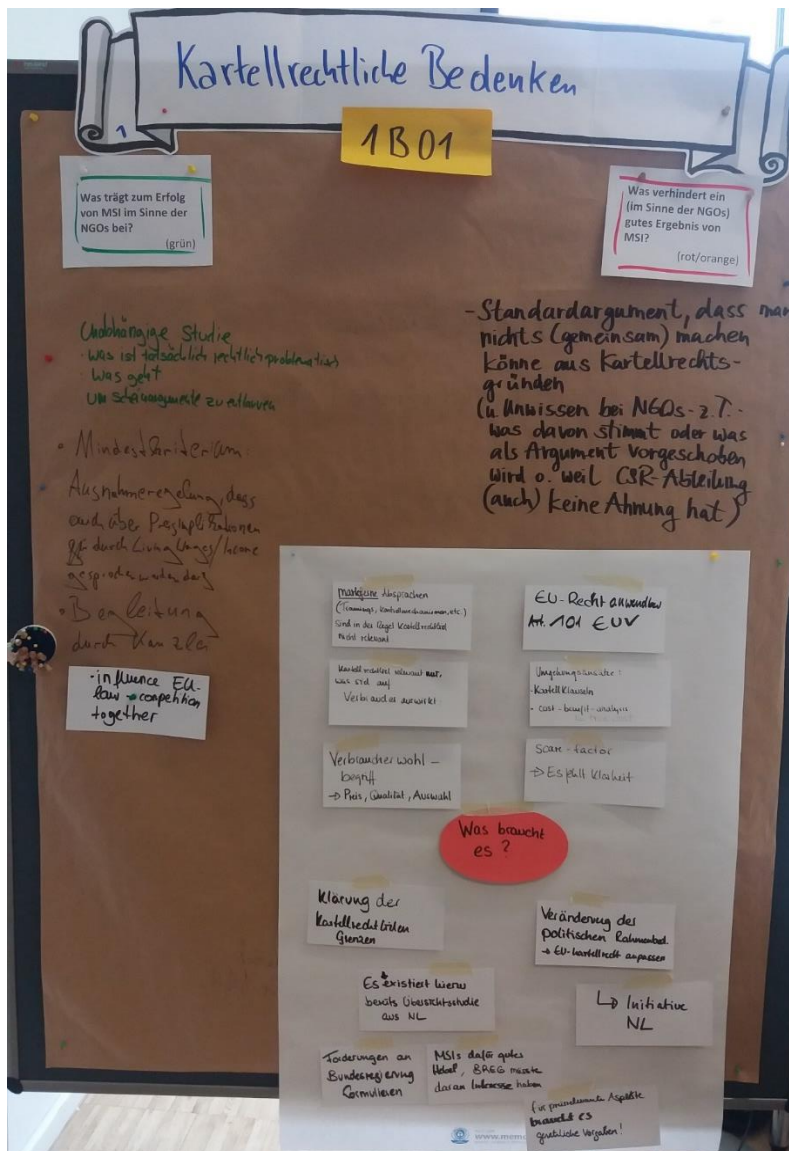 Kartellrechtliche Bedenken
1
1B01
Was trägt zum Erfolg
von MSI im Sinne der
NGOs bei?
(grün)
Was verhindert ein
(im Sinne der NGOs)
gutes Ergebnis von
MSI?
(rot/orange)
Unabhängige Studie
· was ist tatsächlich rechtlich problematisch
· Was geht
um Scheinargumente zu entlarven
• Mindestkriterium:
Ausnahmeregelung, dass
auch über Preisimplikationen
durch Living Wages/Income
gesprochen werden darf
• Begleitung
durch Kanzlei
·influence EU-
law → competition
together
- Standardargument, dass man
nichts (gemeinsam) machen
könne aus Kartellrechts-
gründen
(u. Unwissen bei NGOs - z.T. -
was davon stimmt oder was
als Argument vorgeschoben
wird o. weil CSR-Abteilung
(auch) keine Ahnung hat)
Absprachen
(Trainings, etc.)
sind in der Regel kartellrechtlich
nicht relevant
Kartellrechtlich relevant nur,
was sich auf
Verbraucher auswirkt
Verbraucherwohl -
begriff
→ Preis, Qualität, Auswahl
EU-Recht anwendbar
Art. 101 EUV
Umgehungsansätze:
- Kartellklauseln
• cost-benefit-analysis
Scare-factor
→ Es fehlt Klarheit
Was braucht
es?
Klärung der
Kartellrechtlichen
Grenzen
Veränderung des
politischen Rahmenbed.
→ EU-kartellrecht anpassen
Es existiert hierzu
bereits Übersichtsstudie
aus NL
↳ Initiative
NL
Forderungen an
Bundesregierung
formulieren
MSIs dafür gutes
Hebel, BREG müsste
daran Interesse haben
Für Aspekte
braucht es
gesetzliche Vorgaben!